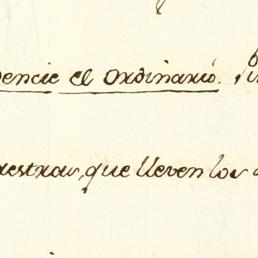 dencie el ordinario.
aestras, que lleven los